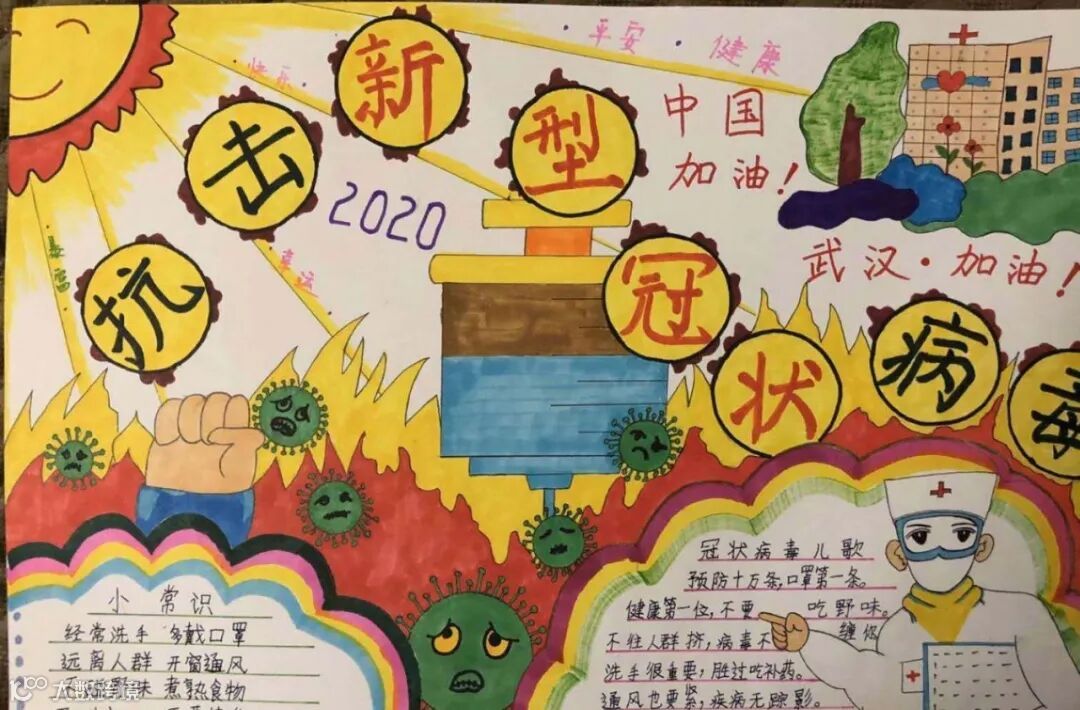 抗击新型冠状病毒
2020
快乐
平安·健康
幸运
中国
加油!
武汉·加油!
小常识
经常洗手 多戴口罩
远离人群 开窗通风
野味 煮熟食物
冠状病毒儿歌
预防十万条,口罩第一条。
健康第一位,不要吃野味。
不往人群挤,病毒不缠你
洗手很重要,胜过吃补药。
通风也要紧,疾病无踪影。
大数跨境